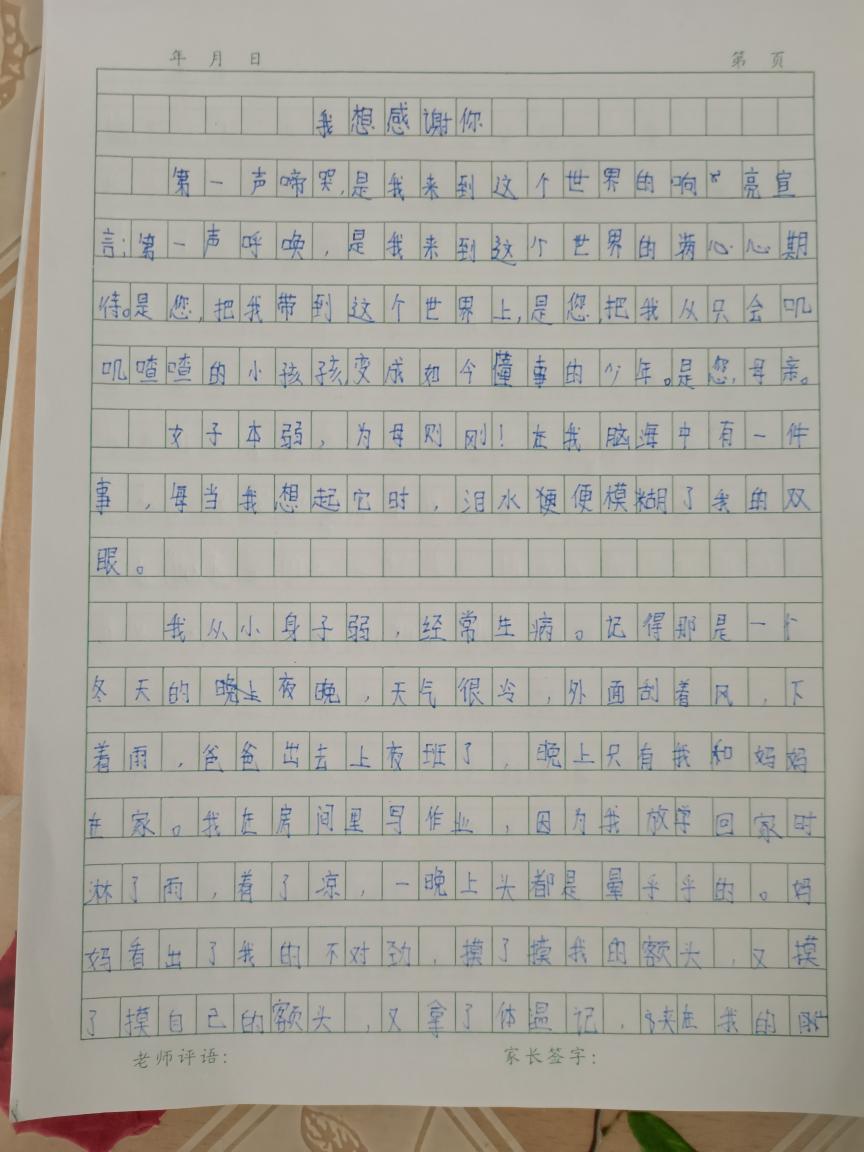 年 月 日 第 页
我想感谢你
第一声啼哭,是我来到这个世界的响亮宣
言;第一声呼唤,是我来到这个世界的满心心期
待。是您,把我带到这个世界上,是您,把我从只会叽
叽喳喳的小孩孩,变成如今懂事的少年。是您,母亲。
女子本弱,为母则刚!在我脑海中有一件
事,每当我想起它时,泪水便便模糊了我的双
眼。
我从小身子弱,经常生病。记得那是一个
冬天的夜晚,天气很冷,外面刮着风,下
着雨,爸爸出去上夜班了,晚上只有我和妈妈
在家。我在房间里写作业,因为我放学回家时
淋了雨,着了凉,一晚上头都是晕乎乎的。妈
妈看出了我的不对劲,摸了摸我的额头,又摸
了摸自己的额头,又拿了体温记,夹在我的
老师评语: 家长签字: